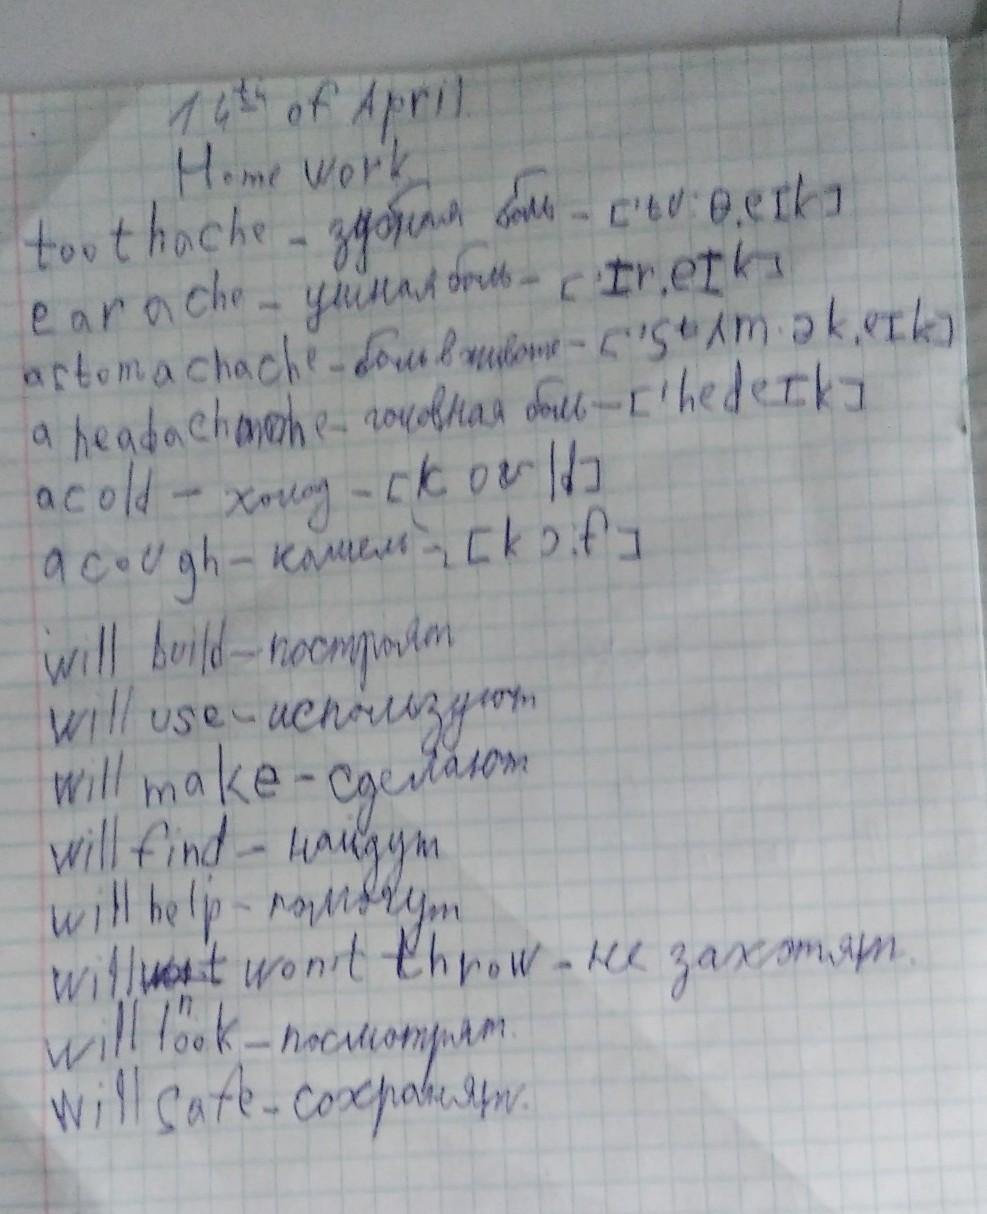 14th of April
Home work
toothache - здобная боль - ['tu:θ,eɪk]
earache - ушная боль - ['ɪr,eɪk]
a stomachache - боль в животе - ['stʌm.ək,eɪk]
a headache - головная боль - ['hedeɪk]
a cold - холод - [koʊld]
a cough - кашель - [kɔ:f]
will build - построят
will use - используют
will make - сделают
will find - найдут
will help - помогут
will won't throw - не захотят.
will look - посмотрят.
will safe - сохранят.